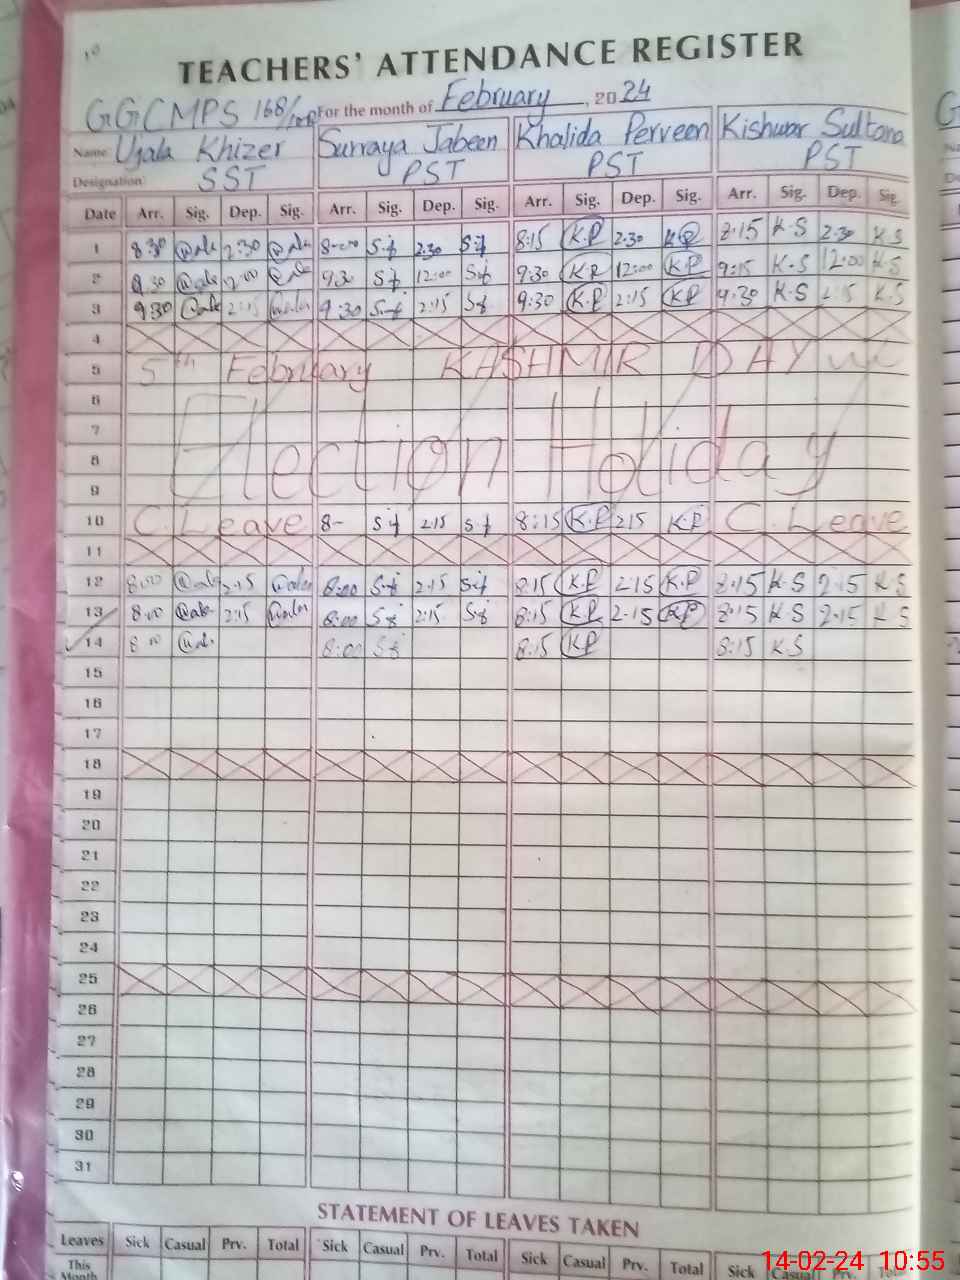 10
TEACHERS' ATTENDANCE REGISTER
GGCMPS 168/ For the month of February, 2024
Name Ujala Khizer Surraya Jabeen Khalida Perveen Kishwar Sultana
Designation: SST PST PST PST
Date Arr. Sig. Dep. Sig. Arr. Sig. Dep. Sig. Arr. Sig. Dep. Sig. Arr. Sig. Dep. Sig.
1 8:30 2:30 8-00 2:30 8:15 K.P 2:30 K.P 8:15 K-S 2:30 K S
2 9:30 9:30 12:00 9:30 K.P 12:00 K.P 9:15 K-S 12:00 K-S
3 9:30 2:15 9:30 2:15 9:30 K.P 2:15 K.P 9:30 K-S 2:15 K-S
4
5 5th February KASHMIR DAY
6
7
8 Election Holiday
9
10 C. Leave 8- 2:15 8:15 K.P 2:15 K.P C. Leave
11
12 8:00 2:15 8:00 2:15 8:15 K.P 2:15 K.P 8:15 K-S 2:15 K-S
13 8:00 2:15 8:00 2:15 8:15 K.P 2-15 K.P 8:15 K-S 2:15 K S
14 8:00 8:00 8:15 K.P 8:15 K.S
15
16
17
18
19
20
21
22
23
24
25
26
27
28
29
30
31
STATEMENT OF LEAVES TAKEN
Leaves Sick Casual Prv. Total Sick Casual Prv. Total Sick Casual Prv. Total Sick
This
Month
14-02-24 10:55